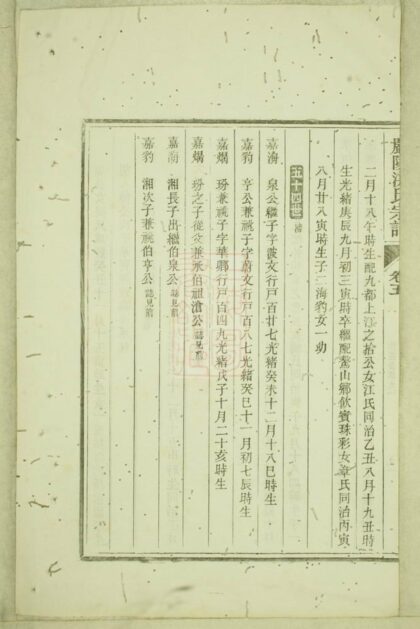 二月十八午時生配九都上江之拾公女江氏同治乙丑八月十九丑時
生光緒庚辰九月初三寅時卒繼配鰲山鄉飲賓珠彩女章氏同治丙寅
八月廿八寅時生子二海豹女一劝
五十四世
嘉海 泉公繼子字波文行戶百廿七光緒癸未十二月十八巳時生
嘉豹 亨公兼祧子字蔚文行戶百八七光緒癸巳十一月初七辰時生
嘉斕 玢兼祧子字華卿行戶百四九光緒戊子十月二十亥時生
嘉斕 玢之子從堂兼承伯祖滄公誌見前
嘉海 湘長子出繼伯泉公誌見前
嘉豹 湘次子兼祧伯亨公誌見前
氏宗譜 卷五